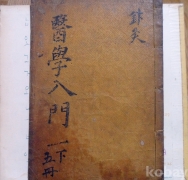 鍼灸
醫學入門 一下
五冊
kobay